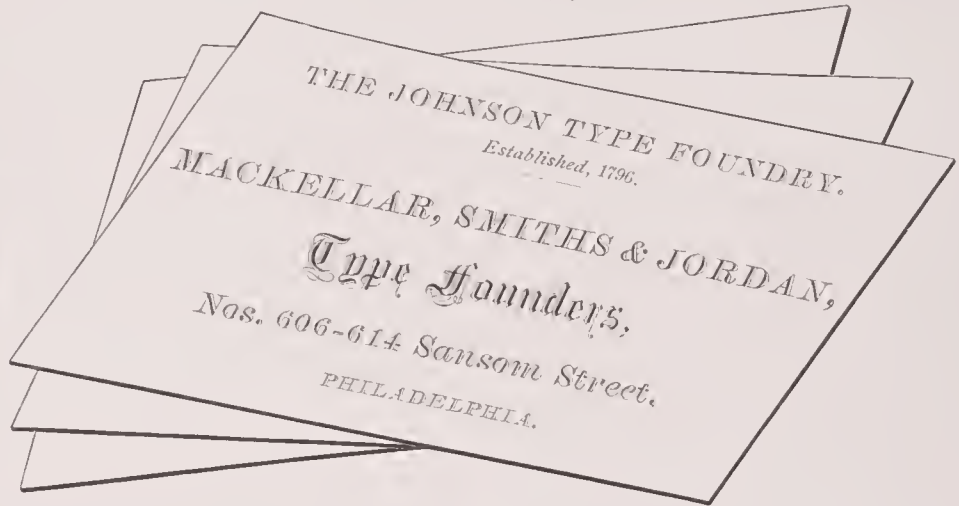 THE JOHNSON TYPE FOUNDRY.
Established, 1796.
MACKELLAR, SMITHS & JORDAN,
Type Founders,
Nos. 606-614 Sansom Street.
PHILADELPHIA.